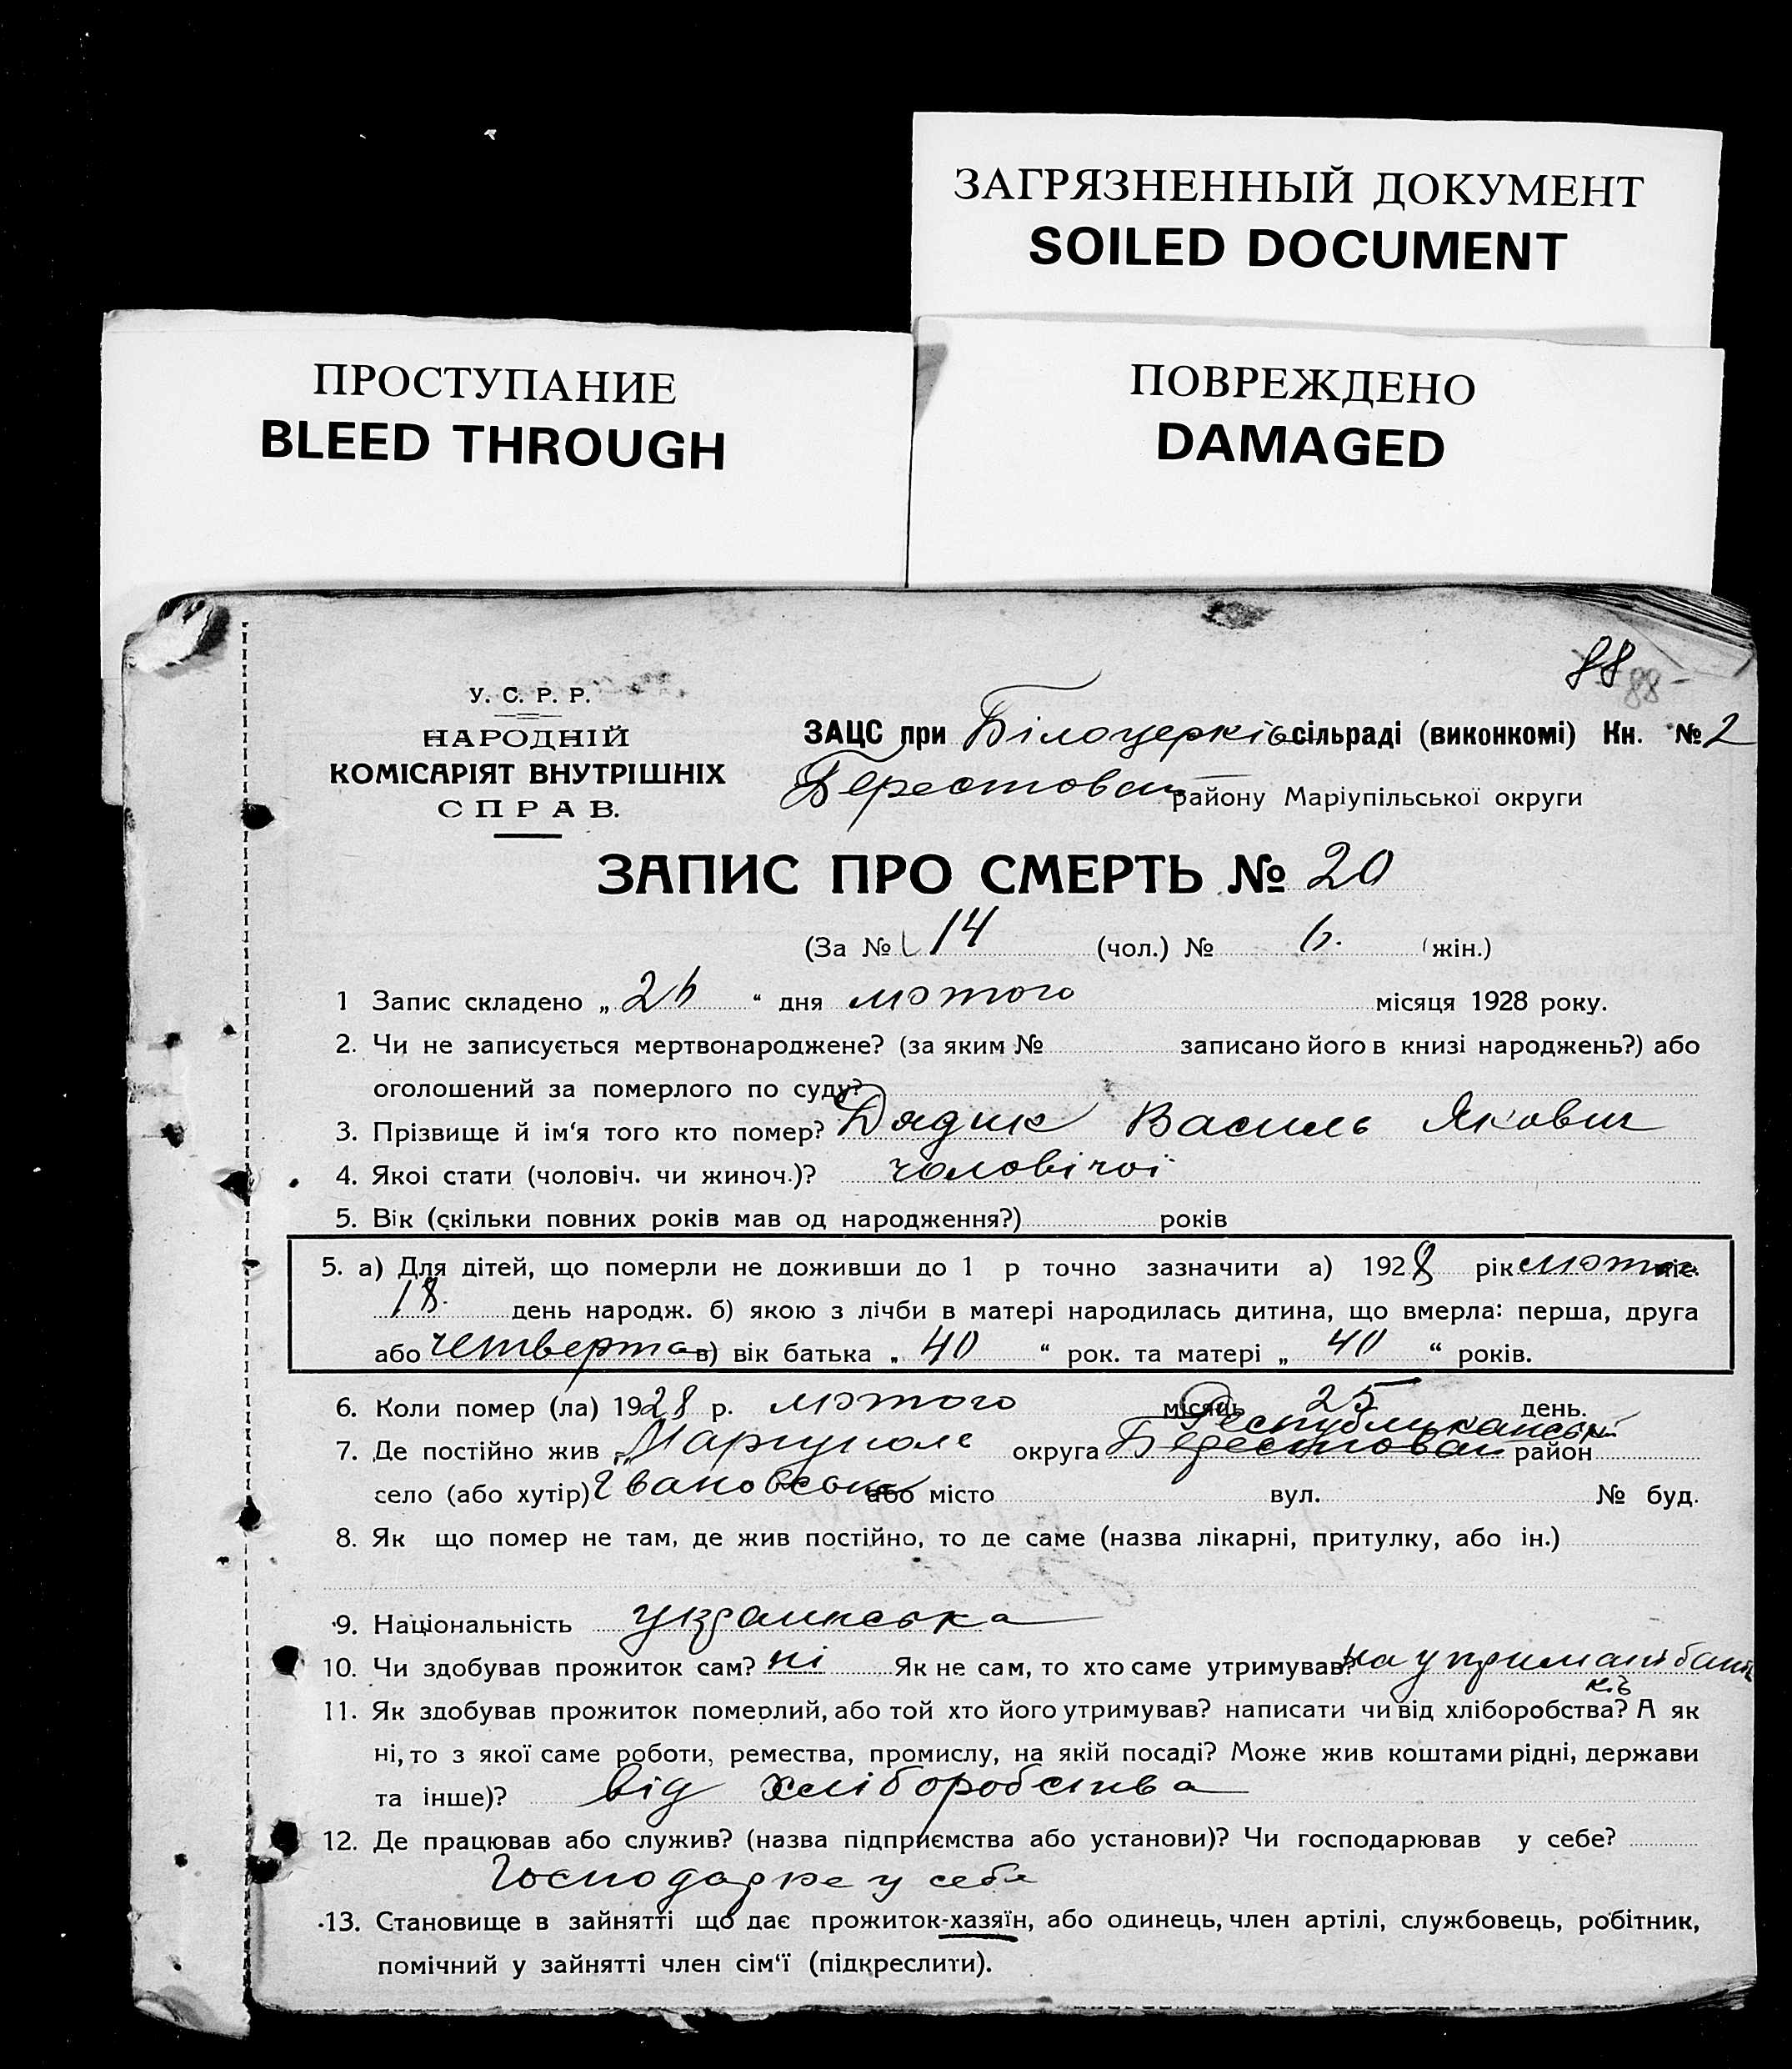 ЗАГРЯЗНЕННЫЙ ДОКУМЕНТ
SOILED DOCUMENT
ПРОСТУПАНИЕ
BLEED THROUGH
ПОВРЕЖДЕНО
DAMAGED
88 88
У. С. Р. Р.
НАРОДНІЙ
КОМІСАРІЯТ ВНУТРІШНІХ
СПРАВ.
ЗАЦС при Білоцерків сільраді (виконкомі) Кн. № 2
Берестован району Маріупільської округи
ЗАПИС ПРО СМЕРТЬ № 20
(За № 14 (чол.) № 6. (жін.)
1 Запис складено „ 26 “ дня лютого місяця 1928 року.
2. Чи не записується мертвонароджене? (за яким № записано його в книзі народжень?) або
оголошений за померлого по суду?
3. Прізвище й ім‘я того кто помер? Дядик Василь Якович
4. Якоі стати (чоловіч. чи жиноч.)? чоловічої
5. Вік (скільки повних років мав од народження?) років
5. а) Для дітей, що померли не доживши до 1 р точно зазначити а) 1928 рік лютого міс.
18. день народж. б) якою з лічби в матері народилась дитина, що вмерла: перша, друга
або четверта в) вік батька „ 40 “ рок. та матері „ 40 “ років.
6. Коли помер (ла) 1928 р. лютого місяць 25 день.
Республиканський
7. Де постійно жив Маріуполь округа Берестован район
село (або хутір) Івановська або місто вул. № буд.
8. Як що помер не там, де жив постійно, то де саме (назва лікарні, притулку, або ін.)
9. Національність украинська
10. Чи здобував прожиток сам? ні Як не сам, то хто саме утримував? на утримані бать
ків
11. Як здобував прожиток померлий, або той хто його утримував? написати чи від хліборобства? А як
ні, то з якої саме роботи, ремества, промислу, на якій посаді? Може жив коштами рідні, держави
та інше)? від хліборобства
12. Де працював або служив? (назва підприємства або установи)? Чи господарював у себе?
Господарює у себе
13. Становище в зайнятті що дає прожиток-хазяїн, або одинець, член артілі, службовець, робітник,
помічний у зайнятті член сім‘ї (підкреслити).